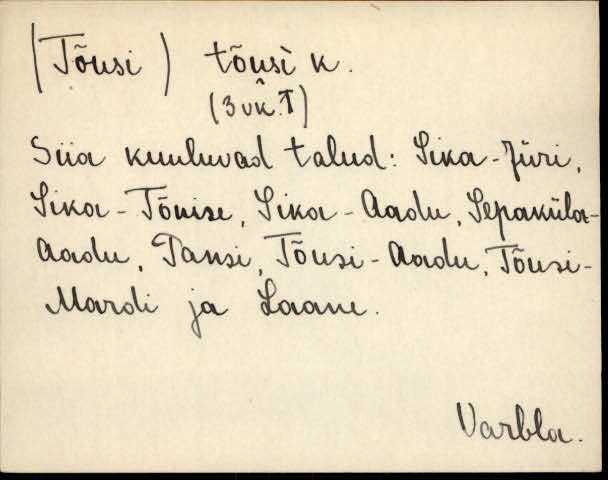 (Tõusi) tõusì k.
(3 vk. T)
Siia kuuluvad talud: Sika-Jüri,
Sika-Tõnise, Sika-Aadu, Sepaküla-
Aadu, Pansi, Tõusi-Aadu, Tõusi-
Mardi ja Laane.
Varbla.